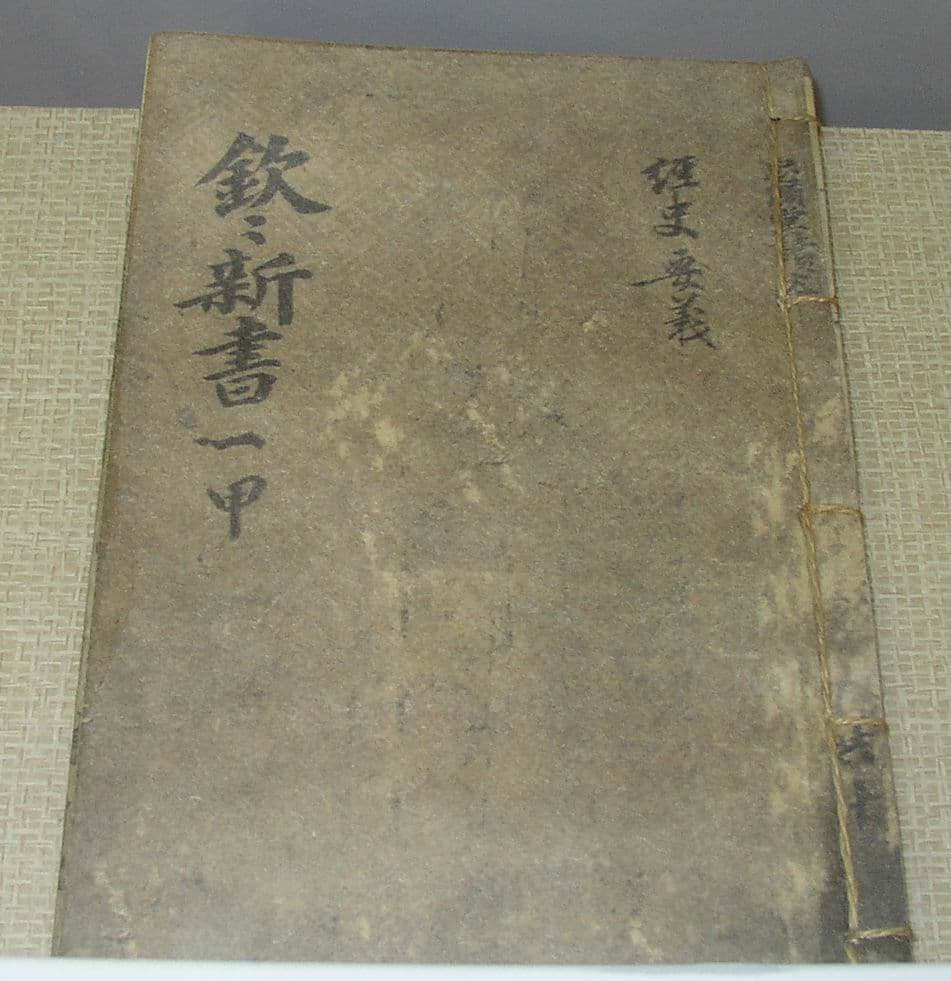 經史要義
欽〻新書一甲